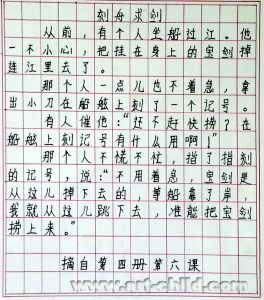 刻舟求剑
从前，有个人坐船过江。他
一不小心，把挂在身上的宝剑掉
进江里去了。
那个人一点儿也不着急，拿
出小刀在船舷上刻了一个记号。
有人催他：“还不赶快捞？在
船舷上刻记号有什么用啊！”
那个人不慌不忙，指了指刻
的记号，说：“不用着急，宝剑是
从这儿掉下去的，等船靠了岸，
我就从这儿跳下去，准能把宝剑
捞上来。”
摘自第四册第六课
www.art-child.com